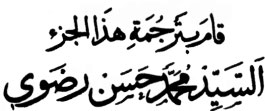 قام بترجمة هذا الجزء
السيد محمد حسن رضوي